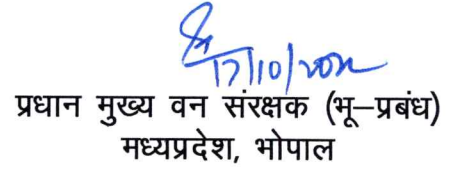 17/10/202
प्रधान मुख्य वन संरक्षक (भू–प्रबंध)
मध्यप्रदेश, भोपाल